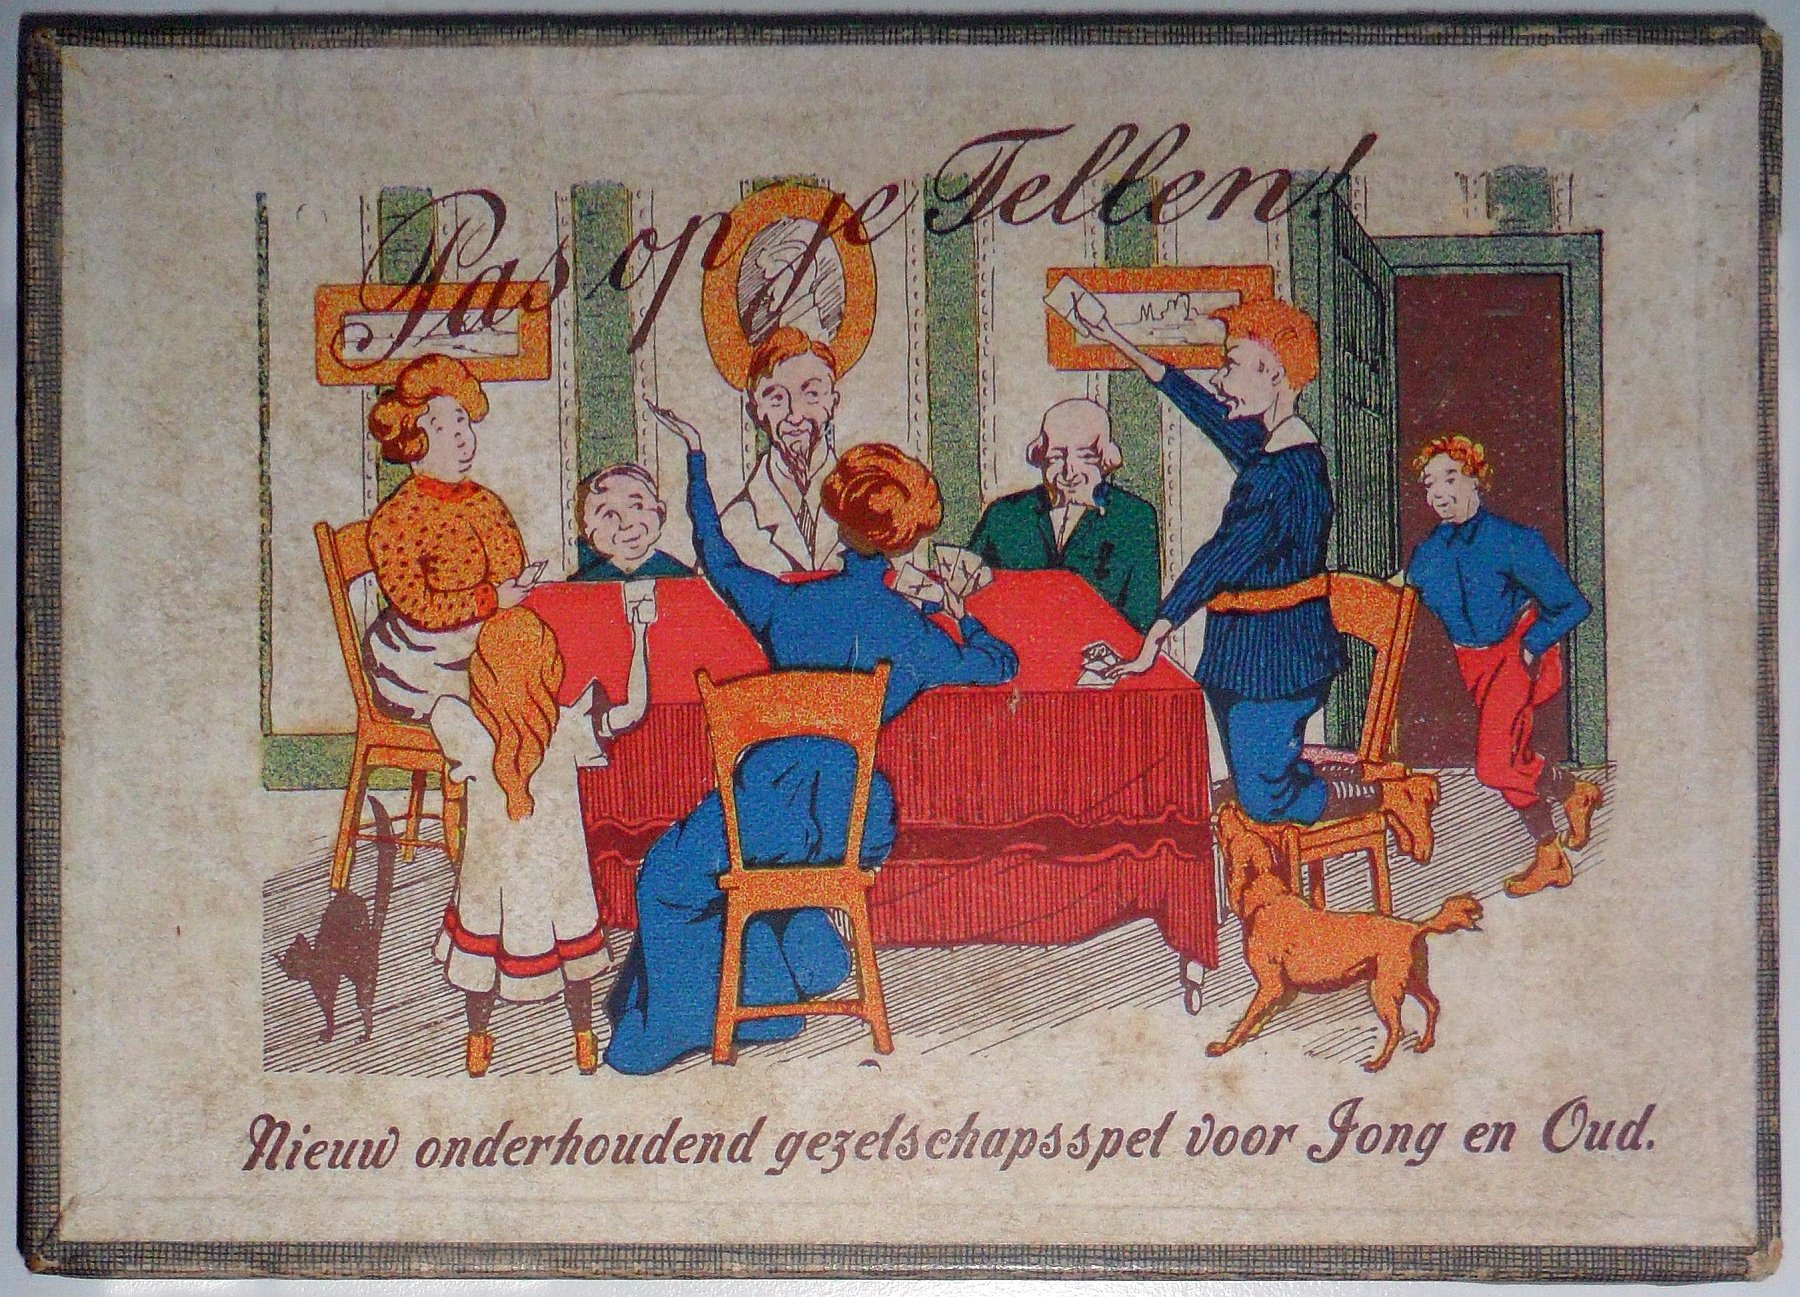 Pas op je Tellen!
Nieuw onderhoudend gezelschapsspel voor Jong en Oud.